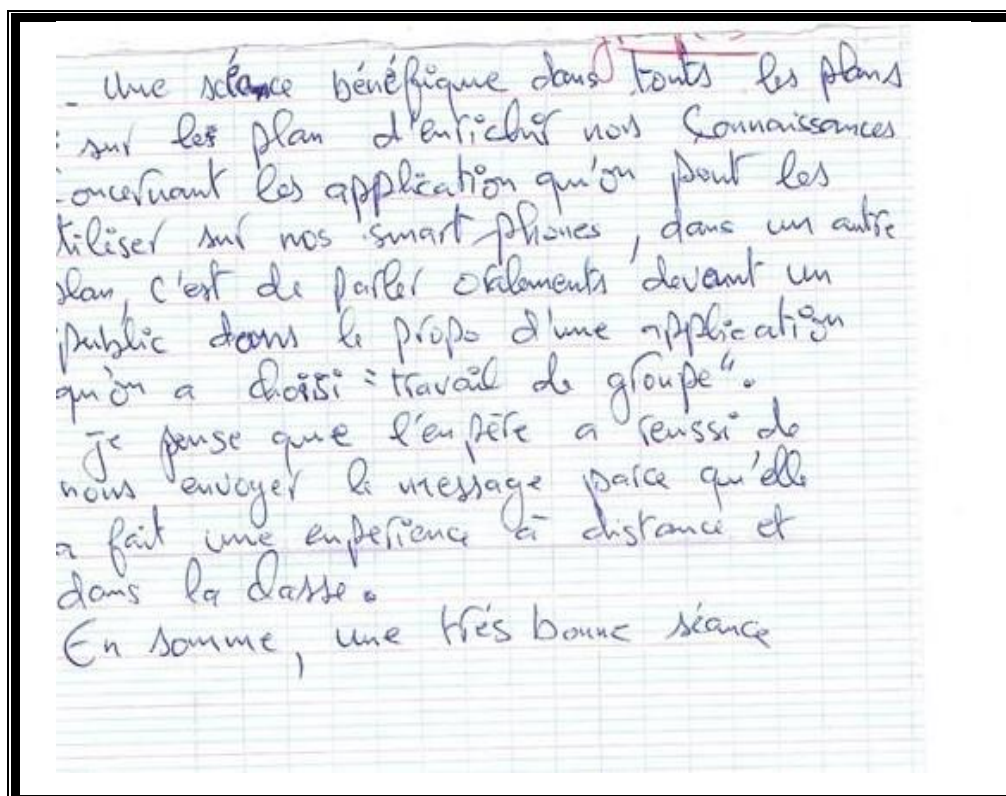 - Une séance bénéfique dans touts les plans
: sur les plan d'enrichir nos Connaissances
concernant les application qu'on peut les
tiliser sur nos smart phones, dans un autre
plan, c'est de parler oralements devant un
public dans le propo d'une application
qu'on a choisi = travail de groupe".
je pense que l'enpère a reussi de
nous envoyer le message parce qu'elle
a fait une enperience à distance et
dans la classe.
En somme, une très bonne séance